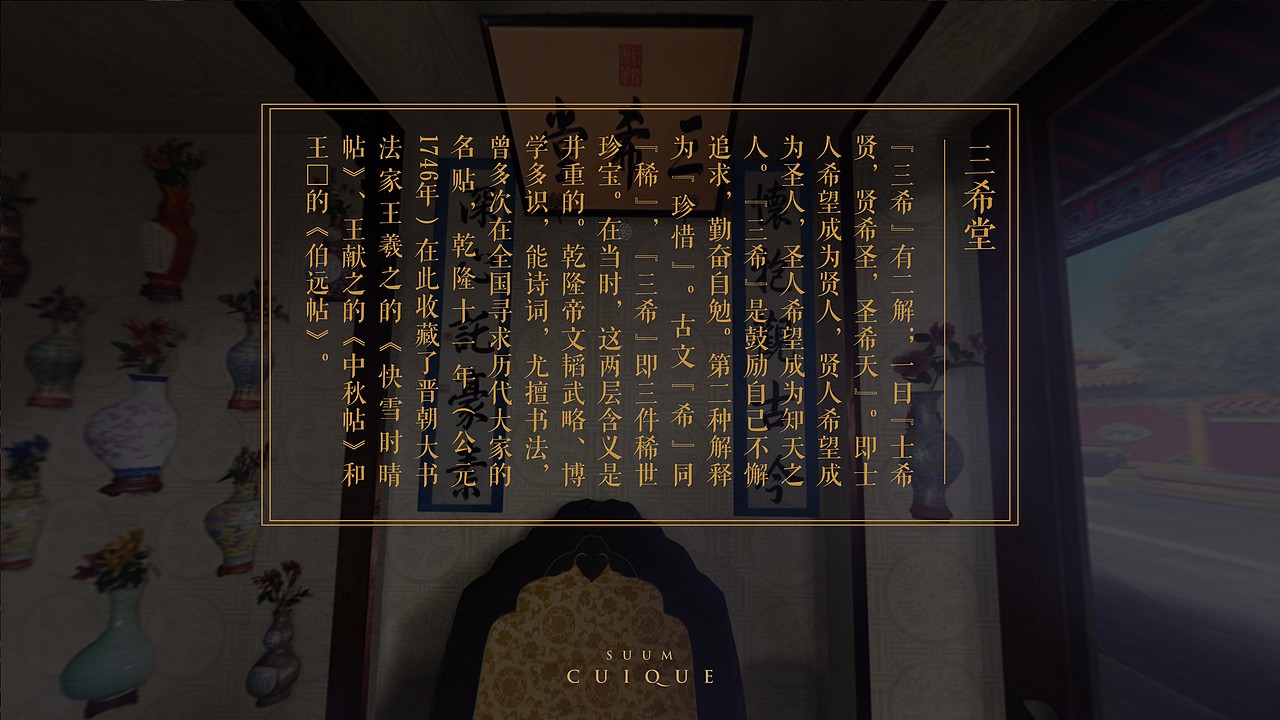 三希堂
『三希』有二解；一曰『士希
贤，贤希圣，圣希天』。即士
人希望成为贤人，贤人希望成
为圣人，圣人希望成为知天之
人。『三希』是鼓励自己不懈
追求，勤奋自勉。第二种解释
为『珍惜』。古文『希』同
『稀』，『三希』即三件稀世
珍宝。在当时，这两层含义是
并重的。乾隆帝文韬武略、博
学多识，能诗词，尤擅书法，
曾多次在全国寻求历代大家的
名贴，乾隆十一年（公元
1746年）在此收藏了晋朝大书
法家王羲之的《快雪时晴
帖》、王献之的《中秋帖》和
王□的《伯远帖》。
三希堂
懷抱觀古今
深心託豪素
SUUM
CUIQUE